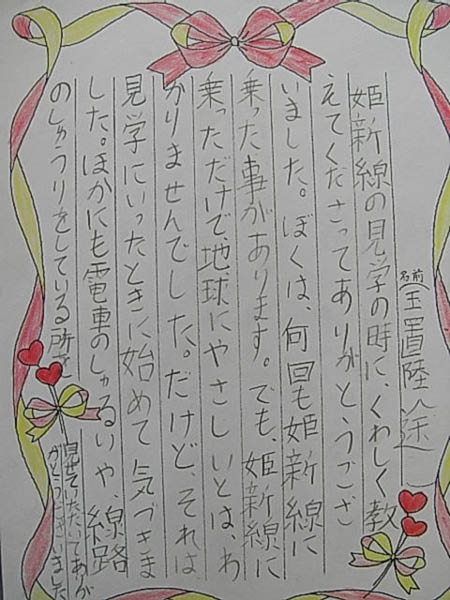 姫新線の見学の時に、くわしく教
名前(玉置陸途)
えてくださってありがとうござ
いました。ぼくは、何回も姫新線に
乗った事があります。でも、姫新線に
乗っただけで地球にやさしいとは、わ
かりませんでした。だけど、それは
見学にいったときに始めて気づきま
した。ほかにも電車のしゅるいや、線路
のしゅうりをしている所を
見せていただいてありが
とうございました